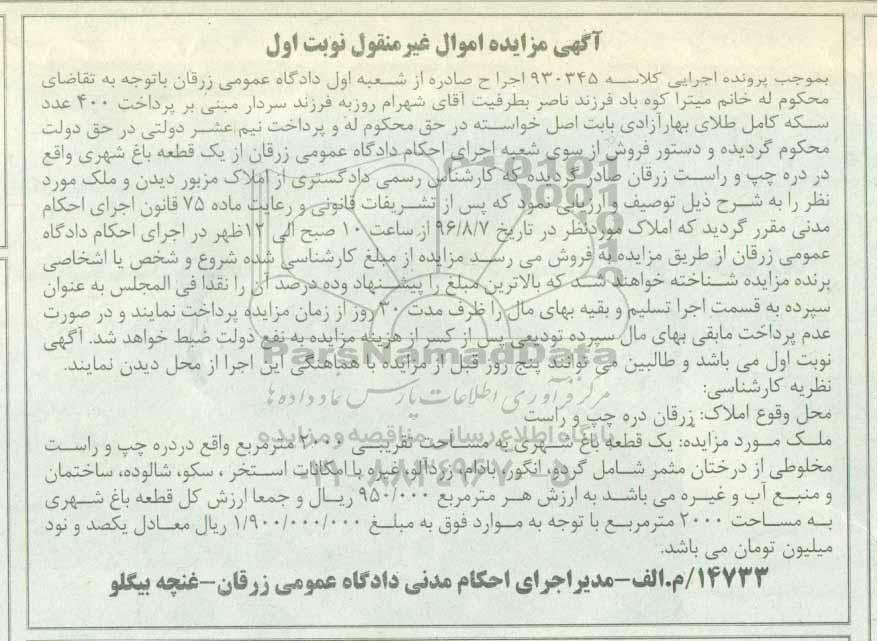 آگهی مزایده اموال غیرمنقول نوبت اول
بموجب پرونده اجرایی کلاسه ۹۳۰۳۴۵ اجرا ح صادره از شعبه اول دادگاه عمومی زرقان باتوجه به تقاضای
محکوم له خانم میترا کوه باد فرزند ناصر بطرفیت آقای شهرام روزبه فرزند سردار مبنی بر پرداخت ۴۰۰ عدد
سکه کامل طلای بهارآزادی بابت اصل خواسته در حق محکوم له و پرداخت نیم عشر دولتی در حق دولت
محکوم گردیده و دستور فروش از سوی شعبه اجرای احکام دادگاه عمومی زرقان از یک قطعه باغ شهری واقع
در دره چپ و راست زرقان صادر گردیده که کارشناس رسمی دادگستری از املاک مزبور دیدن و ملک مورد
نظر را به شرح ذیل توصیف و ارزیابی نمود که پس از تشریفات قانونی و رعایت ماده ۷۵ قانون اجرای احکام
مدنی مقرر گردید که املاک موردنظر در تاریخ ۹۶/۸/۷ از ساعت ۱۰ صبح الی ۱۲ظهر در اجرای احکام دادگاه
عمومی زرقان از طریق مزایده به فروش می رسد مزایده از مبلغ کارشناسی شده شروع و شخص یا اشخاصی
برنده مزایده شناخته خواهند شد که بالاترین مبلغ را پیشنهاد وده درصد آن را نقدا فی المجلس به عنوان
سپرده به قسمت اجرا تسلیم و بقیه بهای مال را ظرف مدت ۳۰ روز از زمان مزایده پرداخت نمایند و در صورت
عدم پرداخت مابقی بهای مال سپرده تودیعی پس از کسر از هزینه مزایده به نفع دولت ضبط خواهد شد. آگهی
نوبت اول می باشد و طالبین می توانند پنج روز قبل از مزایده با هماهنگی این اجرا از محل دیدن نمایند.
ParsNamadData
نظریه کارشناسی:
مرکز فرآوری اطلاعات پارس نماد داده ها
محل وقوع املاک: زرقان دره چپ و راست
پایگاه اطلاع رسانی مناقصه و مزایده
ملک مورد مزایده: یک قطعه باغ شهری به مساحت تقریبی ۲۰۰۰ مترمربع واقع دردره چپ و راست
مخلوطی از درختان مثمر شامل گردو، انگور، بادام، زردآلو، غیره با امکانات استخر ، سکو، شالوده، ساختمان
و منبع آب و غیره می باشد به ارزش هر مترمربع ۹۵۰/۰۰۰ ریال و جمعا ارزش کل قطعه باغ شهری
به مساحت ۲۰۰۰ مترمربع با توجه به موارد فوق به مبلغ ۱/۹۰۰/۰۰۰/۰۰۰ ریال معادل یکصد و نود
میلیون تومان می باشد.
۱۴۷۳۳/م.الف-مدیراجرای احکام مدنی دادگاه عمومی زرقان-غنچه بیگلو